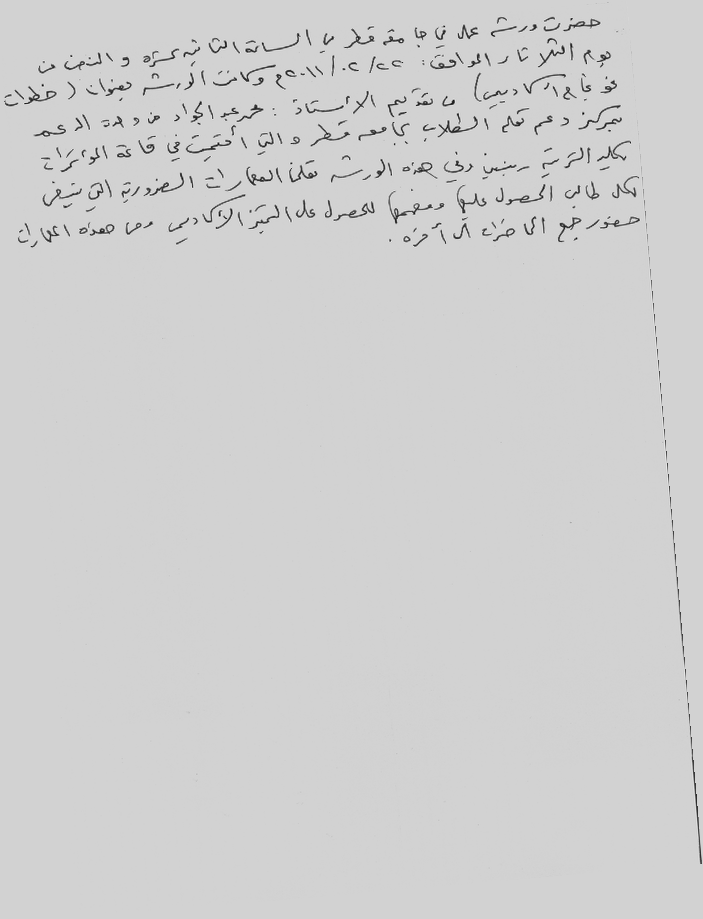 حضرت ورشة عمل في جامعة قطر في الساعة الثانية عشرة و النصف من
يوم الثلاثاء الموافق: ٢٢/٠٢/٢٠١١م وكانت الورشة بعنوان (خطوات
نحو نجاح أكاديمي) من تقديم الأستاذ: محمد عبد الجواد من وحدة الدعم
بمركز دعم تعلم الطلاب بجامعة قطر والتي أقيمت في قاعة المؤتمرات
بكلية التربية بنين وفي هذه الورشة تعلمنا المهارات الضرورية التي ينبغي
لكل طالب الحصول عليها وفهمها للحصول على التميز الأكاديمي ومن هذه المهارات
حضور جميع المحاضرات إلى آخره.